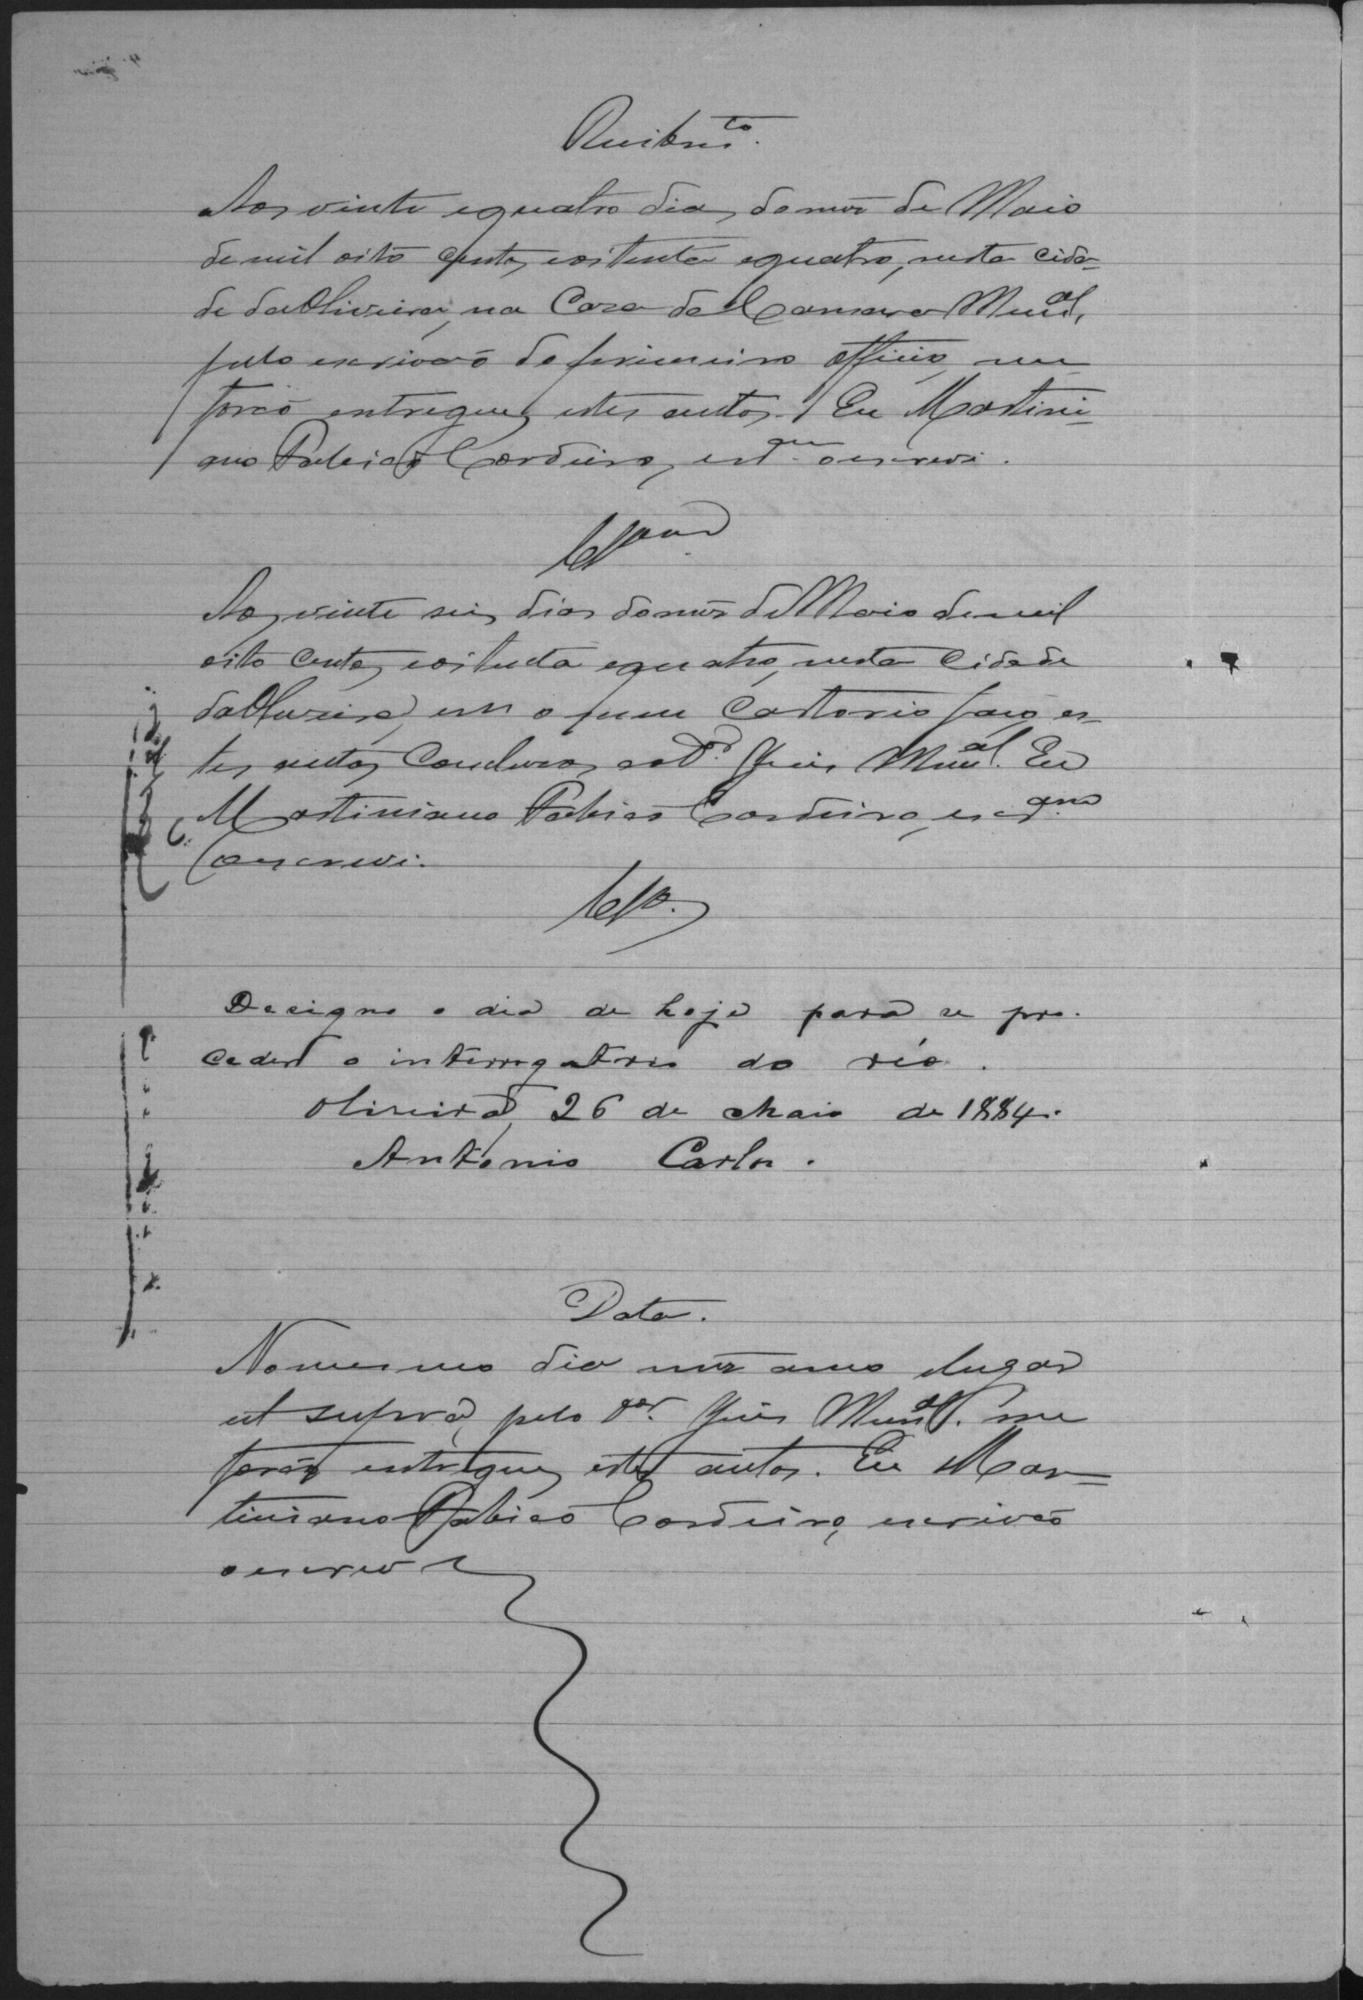 Recibm.to
Aos vinte e quatro dias do mez de Maio
de mil oito centos e oitenta e quatro, nesta cida-
de da Oliveira, na Casa da Camara Mun.al,
pelo escrivão do primeiro officio, me
forão entregues estes autos. Eu Martini-
ano Fabião Cordeiro, escr.am o escrevi.
Clsam
Aos vinte seis dias do mez de Maio de mil
oito centos e oitenta e quatro, nesta Cidade
da Oliveira, em o meu Cartorio faço es-
tes autos Conclusos ao D.or Juis Mun.al. Eu
Martiniano Fabião Cordeiro, escr.am
o escrevi.
Cls.
Designo o dia de hoje para se pro-
ceder o interrogatorio do réo.
Oliveira, 26 de Maio de 1884.
Antonio Carlos.
Data.
No mesmo dia mez anno e lugar
ut supra, pelo D.or Juis Mun.al. me
forão entregues estes autos. Eu Mar-
tiniano Fabião Cordeiro, escrivão
o escrevi